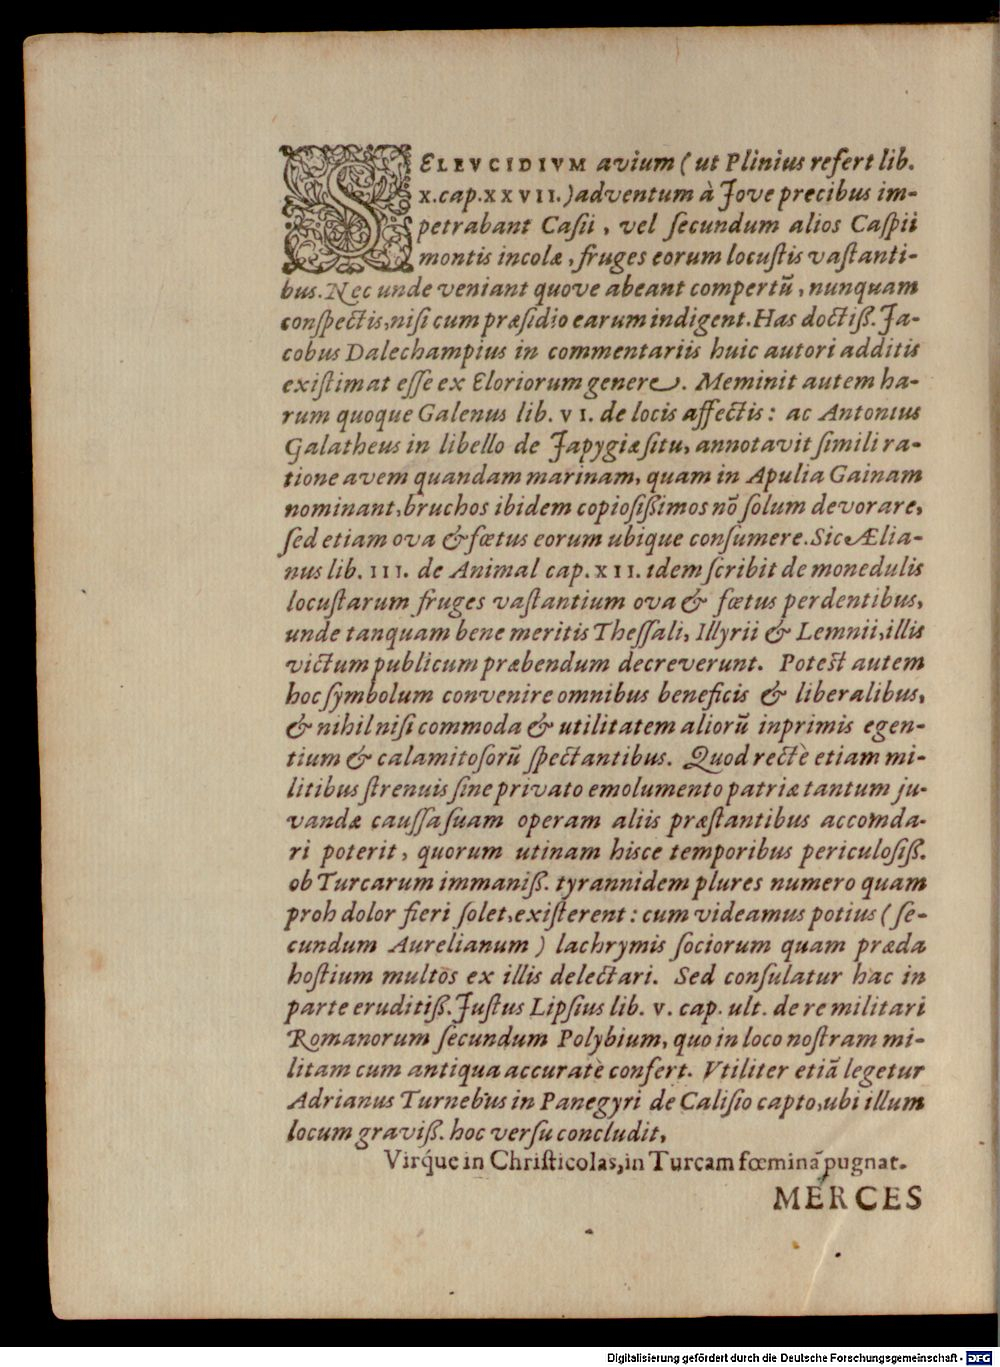 SELEVCIDIVM avium (ut Plinius refert lib.
X. cap. XXVII.) adventum à Jove precibus im-
petrabant Casii, vel secundum alios Caspii
montis incolæ, fruges eorum locustis vastanti-
bus. Nec unde veniant quove abeant compertũ, nunquam
conspectis, nisi cum præsidio earum indigent. Has doctiß. Ja-
cobus Dalechampius in commentariis huic autori additis
existimat esse ex Eloriorum genere. Meminit autem ha-
rum quoque Galenus lib. VI. de locis affectis: ac Antonius
Galatheus in libello de Japygiæ situ, annotavit simili ra-
tione avem quandam marinam, quam in Apulia Gainam
nominant, bruchos ibidem copiosißimos nõ solum devorare,
sed etiam ova & fœtus eorum ubique consumere. Sic Ælia-
nus lib. III. de Animal cap. XII. idem scribit de monedulis
locustarum fruges vastantium ova & fœtus perdentibus,
unde tanquam bene meritis Thessali, Illyrii & Lemnii, illis
victum publicum præbendum decreverunt. Potest autem
hoc symbolum convenire omnibus beneficis & liberalibus,
& nihil nisi commoda & utilitatem aliorũ inprimis egen-
tium & calamitosorũ spectantibus. Quod rectè etiam mi-
litibus strenuis sine privato emolumento patriæ tantum ju-
vandæ caussa suam operam aliis præstantibus accomda-
ri poterit, quorum utinam hisce temporibus periculosiß.
ob Turcarum immaniß. tyrannidem plures numero quam
proh dolor fieri solet, existerent: cum videamus potius (se-
cundum Aurelianum) lachrymis sociorum quam præda
hostium multos ex illis delectari. Sed consulatur hac in
parte eruditiß. Justus Lipsius lib. V. cap. ult. de re militari
Romanorum secundum Polybium, quo in loco nostram mi-
litam cum antiqua accuratè confert. Vtiliter etiã legetur
Adrianus Turnebus in Panegyri de Calisio capto, ubi illum
locum graviß. hoc versu concludit,
Virq́ue in Christicolas, in Turcam fœminã pugnat.
MERCES
Digitalisierung gefördert durch die Deutsche Forschungsgemeinschaft - DFG